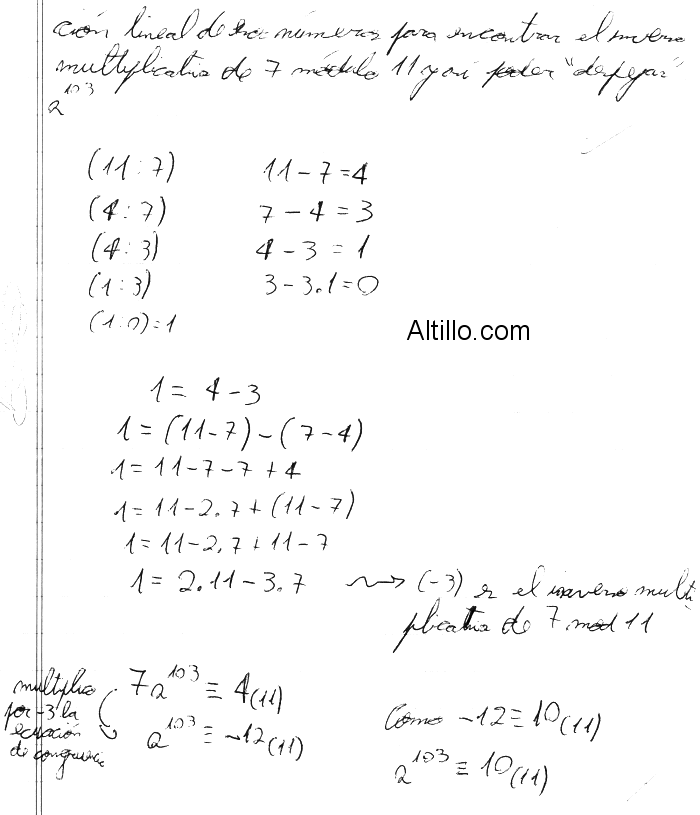 ción lineal de esos números para encontrar el inverso
multiplicativo de 7 módulo 11 y así poder "despejar"
a^103
(11:7) 11-7=4
(4:7) 7-4=3
(4:3) 4-3=1
(1:3) 3-3.1=0
(1:0)=1
Altillo.com
1=4-3
1=(11-7)-(7-4)
1=11-7-7+4
1=11-2.7+(11-7)
1=11-2.7+11-7
1=2.11-3.7 ⇝ (-3) es el inverso multi
plicativo de 7 mod 11
multiplico
por -3 la
ecuación
de congruencia
7a^103 ≡ 4(11)
a^103 ≡ -12(11)
Como -12≡10(11)
a^103 ≡ 10(11)